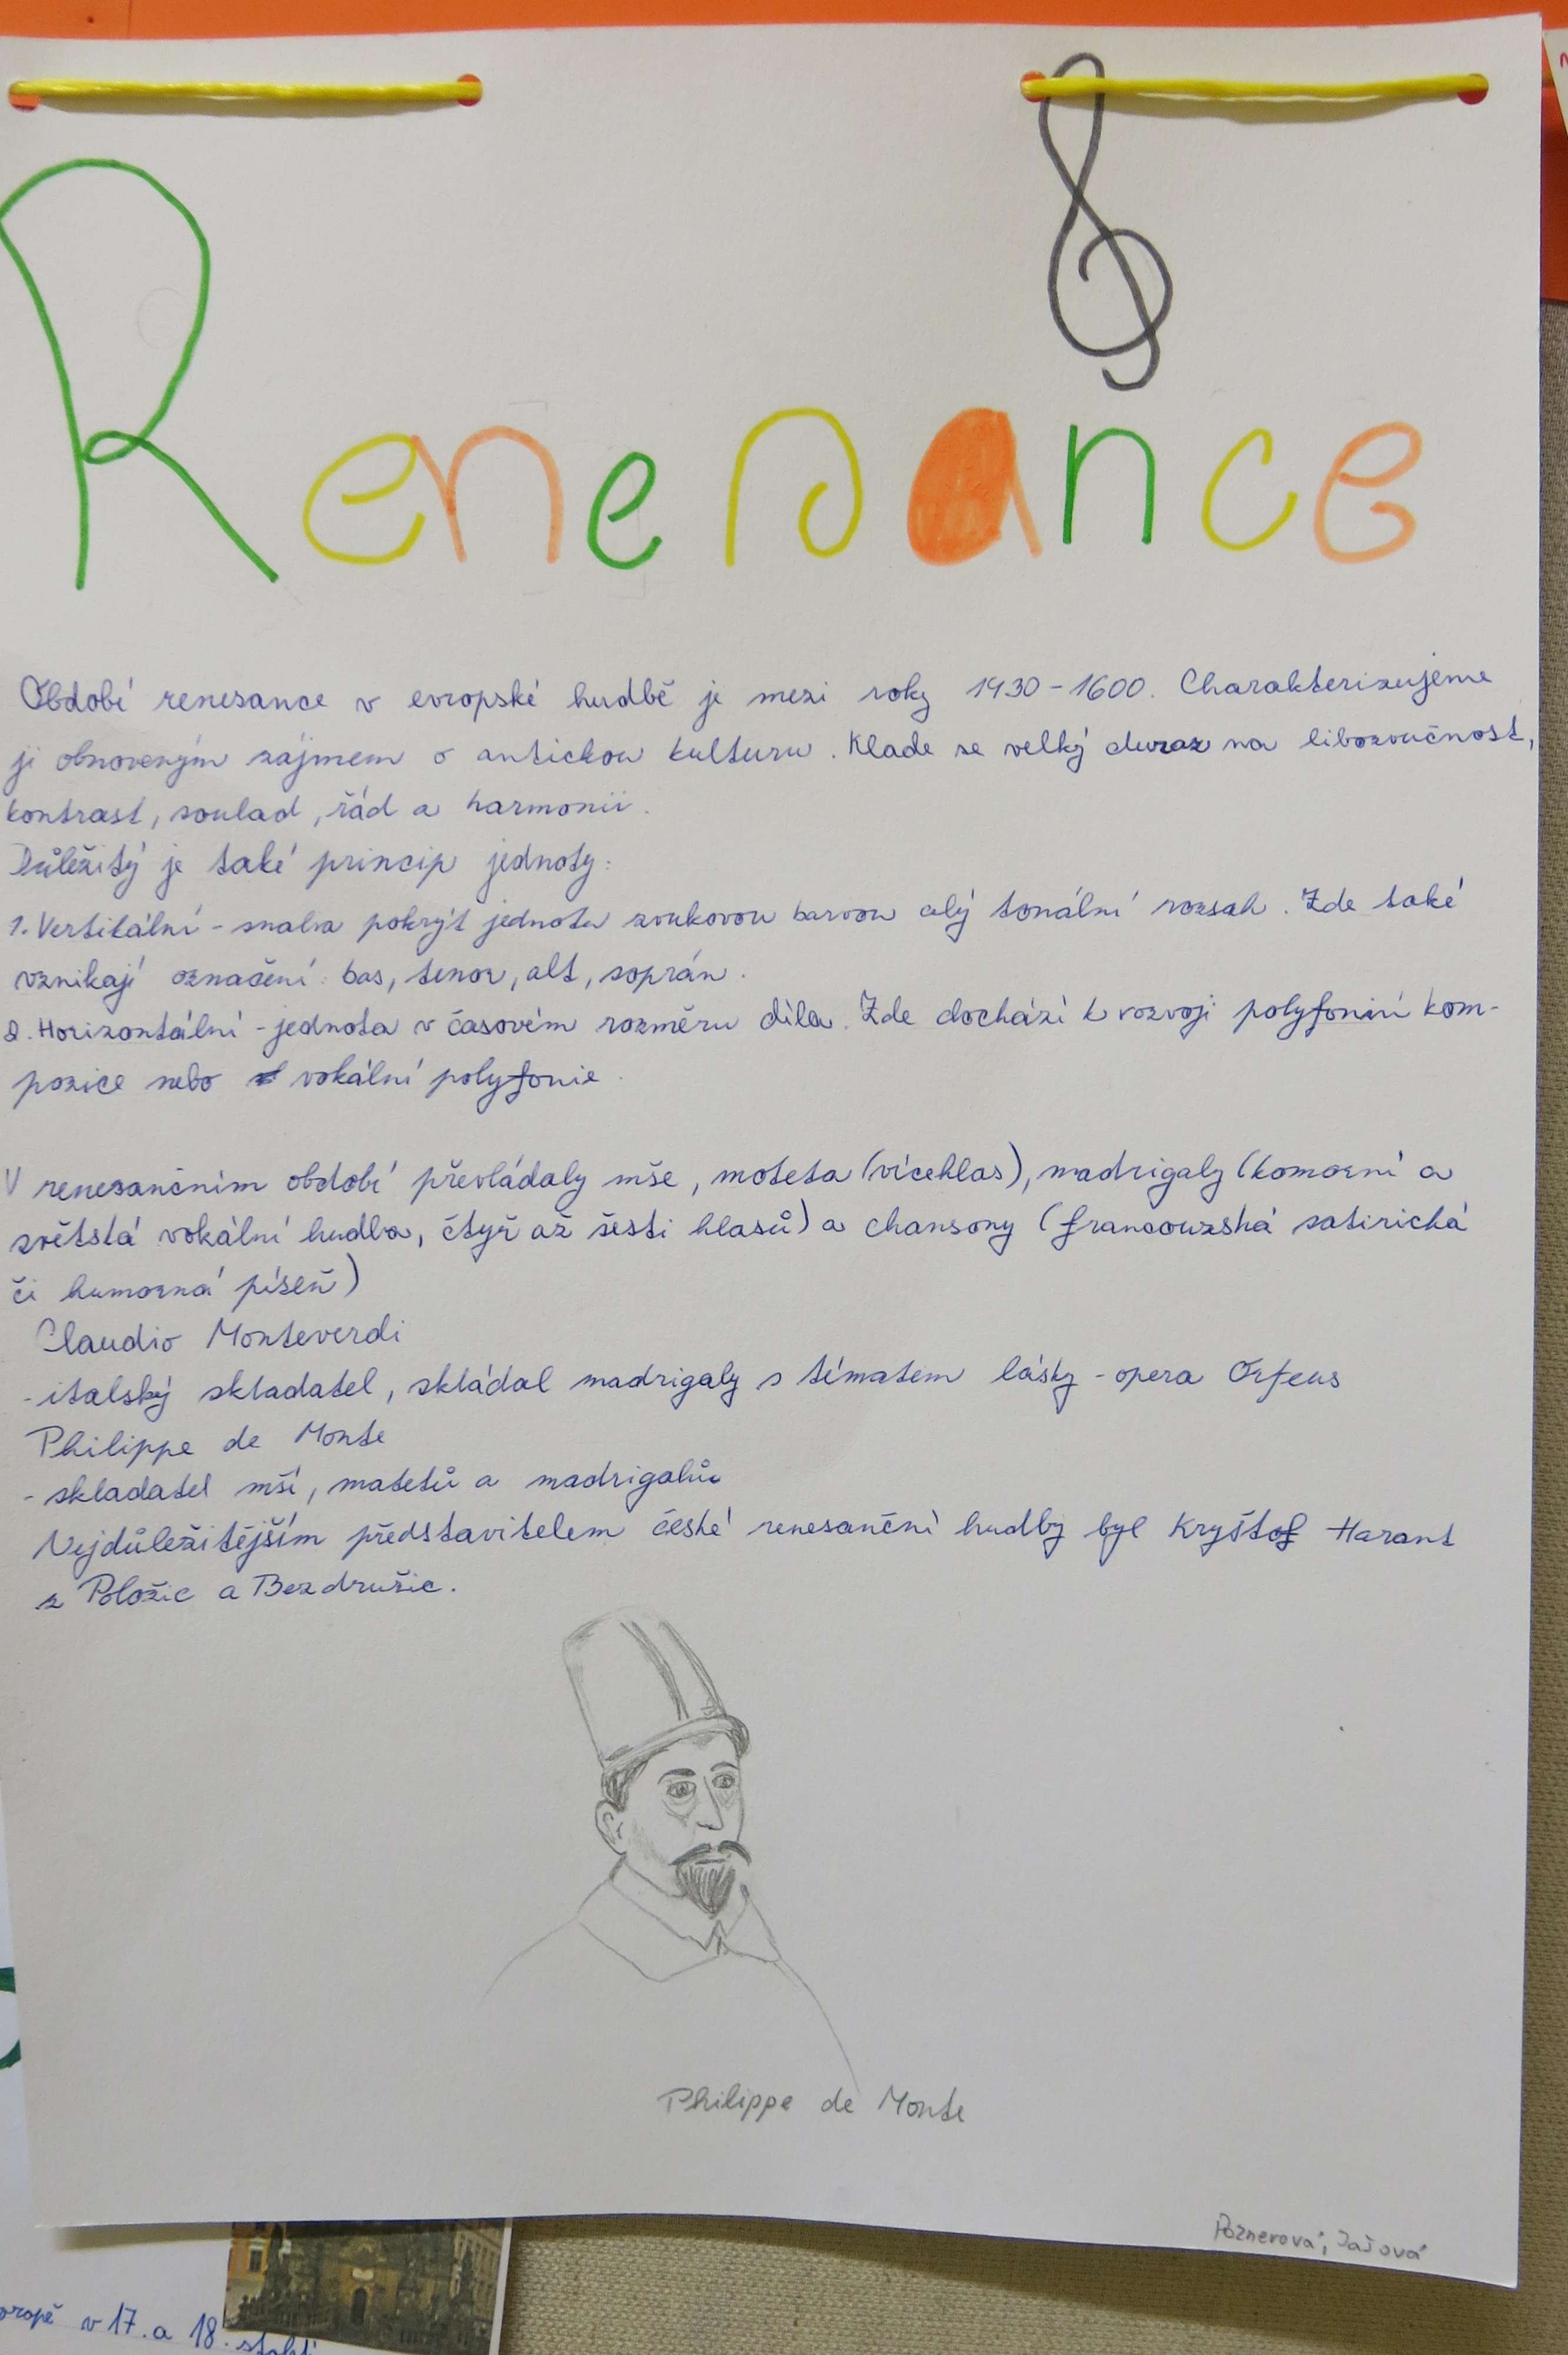 Renesance
Období renesance v evropské hudbě je mezi roky 1430-1600. Charakterizujeme
ji obnoveným zájmem o antickou kulturu. Klade se velký duraz na libozvučnost,
kontrast, soulad, řád a harmonii.
Důležitý je také princip jednoty:
1. Vertikální - snaha pokrýt jednotu zvukovou barvou celý tonální rozsah. Zde také
vznikají označení: bas, tenor, alt, soprán.
2. Horizontální - jednota v časovém rozměru díla. Zde dochází k rozvoji polyfonií kom-
pozice nebo vokální polyfonie.
V renesančním období převládaly mše, moteta (vícehlas), madrigaly (komorní a
světská vokální hudba, čtyř až šesti hlasů) a chansony (francouzská satirická
či humorná píseň)
Claudio Monteverdi
-italský skladatel, skládal madrigaly s tématem lásky - opera Orfeus
Philippe de Monte
-skladatel mší, matetů a madrigalů
Nejdůležitějším představitelem české renesanční hudby byl Kryštof Harant
z Položic a Bezdružic.
Philippe de Monte
Poznerová,
v 17. a 18.